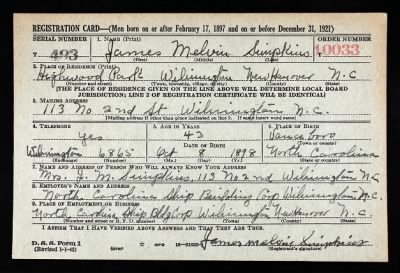 REGISTRATION CARD—(Men born on or after February 17, 1897 and on or before December 31, 1921)
SERIAL NUMBER 1. NAME (Print) ORDER NUMBER
T 493 James Melvin Simpkins 10033
(First) (Middle) (Last)
2. PLACE OF RESIDENCE (Print)
Highwood Park Wilmington New Hanover N.C
[THE PLACE OF RESIDENCE GIVEN ON THE LINE ABOVE WILL DETERMINE LOCAL BOARD
JURISDICTION; LINE 2 OF REGISTRATION CERTIFICATE WILL BE IDENTICAL]
3. MAILING ADDRESS
113 No 2nd St Wilmington N.C.
[Mailing address if other than place indicated on line 2. If same insert word same]
4. TELEPHONE 5. AGE IN YEARS 6. PLACE OF BIRTH
Yes 43 Vanceboro
DATE OF BIRTH (Town or county)
Wilmington 6865 Oct 8 1898 North Carolina
(Exchange) (Number) (Mo.) (Day) (Yr.) (State or country)
7. NAME AND ADDRESS OF PERSON WHO WILL ALWAYS KNOW YOUR ADDRESS
Mrs. J. M. Simpkins, 113 No 2nd Wilmington N.C
8. EMPLOYER'S NAME AND ADDRESS
North Carolina Ship Building Corp Wilmington N.C.
9. PLACE OF EMPLOYMENT OR BUSINESS
North Carolina Ship Bldg Corp Wilmington New Hanover N.C
(Number and street or R. F. D. number) (Town) (County) (State)
I AFFIRM THAT I HAVE VERIFIED ABOVE ANSWERS AND THAT THEY ARE TRUE.
D. S. S. Form 1
(Revised 1-1-42) (over) James Melvin Simpkins